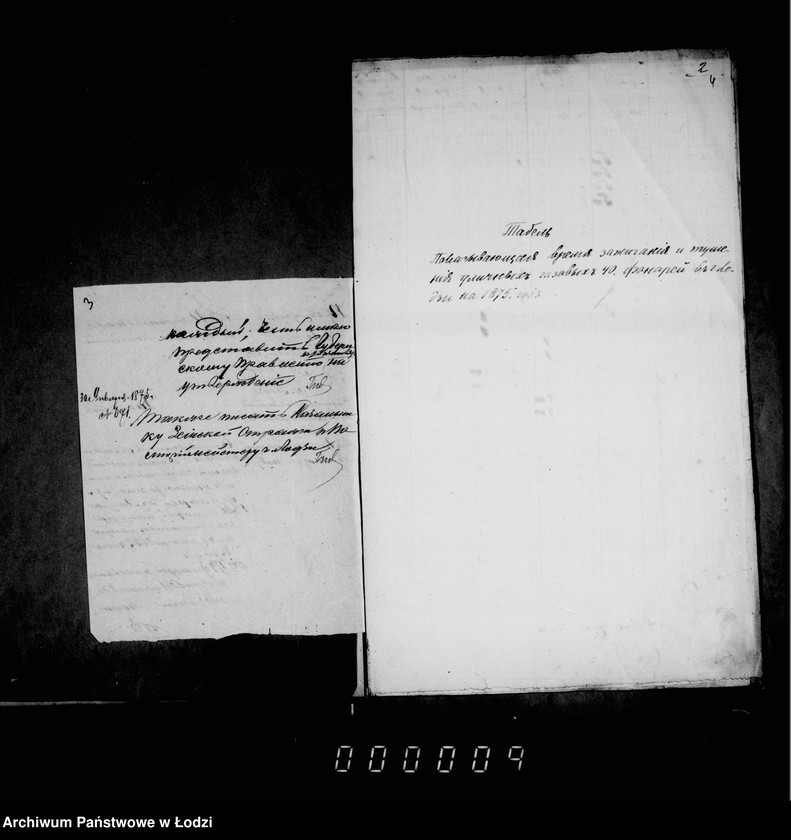 3
имѣю
представить Губерн
скому Правленію на
утвержденіе
30 Января 1875 г.
№ 641.
Также писать Начальни
ку Земской Стражи и По
лицмейстеру г. Лодзи
2
4
Табель
Показывающая время зажиганія и туше-
нія уличныхъ газовыхъ 40. фонарей въ г. Ло-
дзи на 1875. годъ
000009
Archiwum Państwowe w Łodzi